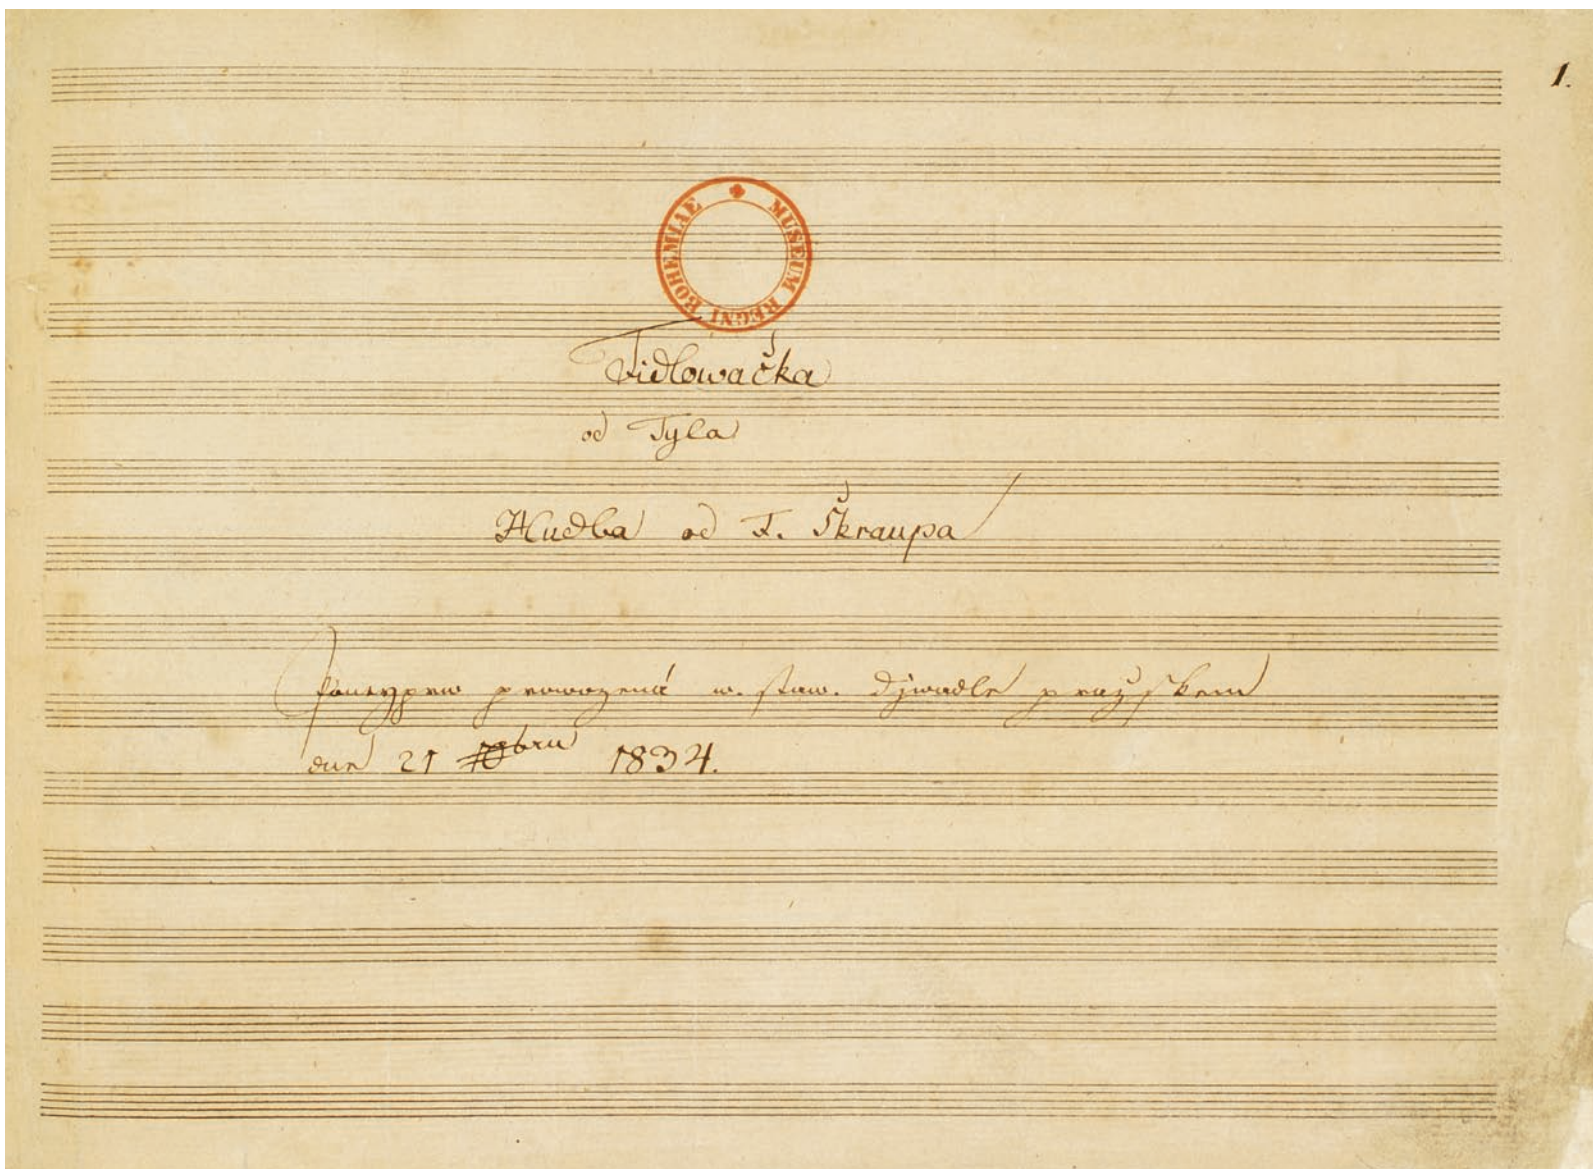 1.
MUSEUM REGNI BOHEMIAE
Fidlowačka
od Tyla
Hudba od F. Škraupa
ponejprw prowozená w. staw. djwadle pražskem
dne 21 10bru 1834.